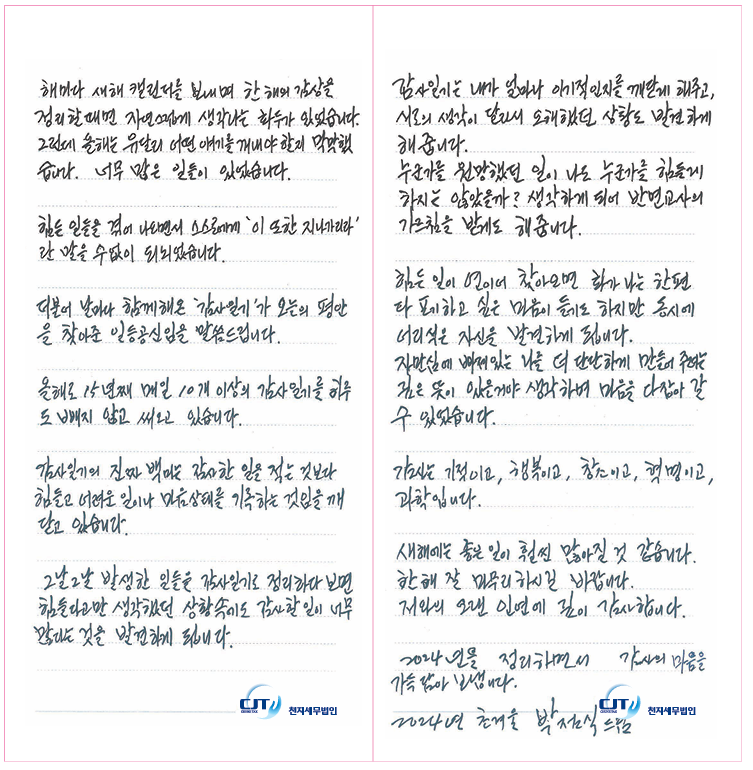 해마다 새해 캘린더를 보내며 한 해의 감상을
정리할 때면 자연스럽게 생각나는 화두가 있었습니다.
그런데 올해는 유달리 어떤 얘기를 꺼내야 할지 막막했
습니다. 너무 많은 일들이 있었습니다.
힘든 일들을 겪어 나오면서 스스로에게 '이 또한 지나가리라'
란 말을 수없이 되뇌었습니다.
더불어 날마다 함께해온 '감사일기'가 오늘의 평안
을 찾아준 일등공신임을 말씀드립니다.
올해로 15년째 매일 10개 이상의 감사일기를 하루
도 빼지 않고 써오고 있습니다.
감사일기의 진짜 백미는 감사한 일을 적는 것보다
힘들고 어려운 일이나 마음상태를 기록하는 것임을 깨
닫고 있습니다.
그날그날 발생한 일들을 감사일기로 정리하다 보면
힘들다고만 생각했던 상황속에도 감사할 일이 너무
많다는 것을 발견하게 됩니다.
CJT 천지세무법인
감사일기는 내가 얼마나 이기적인지를 깨닫게 해주고,
서로의 생각이 달라서 오해했던 상황도 발견하게
해 줍니다.
누군가를 원망했던 일이 나도 누군가를 힘들게
하지는 않았을까? 생각하게 되어 반면교사의
가르침을 받게도 해 줍니다.
힘든 일이 연이어 찾아오면 화가 나는 한편
다 포기하고 싶은 마음이 들기도 하지만 동시에
어리석은 자신을 발견하게 됩니다.
자만심에 빠져있는 나를 더 단단하게 만들어 주려는
깊은 뜻이 있을거야 생각하며 마음을 다잡아 갈
수 있었습니다.
감사는 기적이고, 행복이고, 창조이고, 혁명이고,
과학입니다.
새해에는 좋은 일이 훨씬 많아질 것 같습니다.
한 해 잘 마무리하시길 바랍니다.
저와의 오랜 인연에 깊이 감사합니다.
2024년을 정리하면서 감사의 마음을
가득 담아 보냅니다.
CJT 천지세무법인
2024년 초겨울 박점식 드림